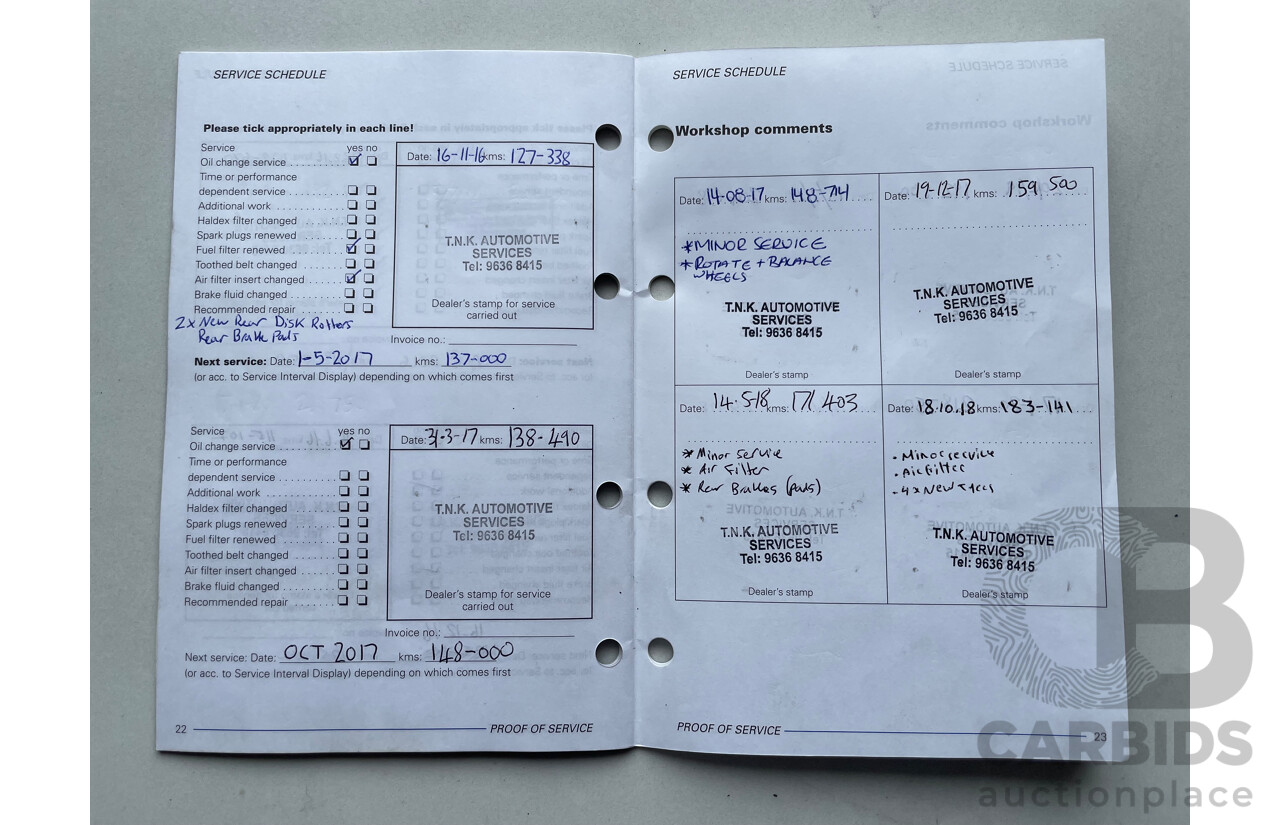 SERVICE SCHEDULE
Please tick appropriately in each line!
Service yes no
Oil change service
Time or performance
dependent service
Additional work
Haldex filter changed
Spark plugs renewed
Fuel filter renewed
Toothed belt changed
Air filter insert changed
Brake fluid changed
Recommended repair
2x New Rear Disk Rotters
Rear Brake Pads
Date: 16-11-16 kms: 127-338
T.N.K. AUTOMOTIVE
SERVICES
Tel: 9636 8415
Dealer's stamp for service
carried out
Invoice no.:
Next service: Date: 1-5-2017 kms: 137-000
(or acc. to Service Interval Display) depending on which comes first
Service yes no
Oil change service
Time or performance
dependent service
Additional work
Haldex filter changed
Spark plugs renewed
Fuel filter renewed
Toothed belt changed
Air filter insert changed
Brake fluid changed
Recommended repair
Date: 31-3-17 kms: 138-490
T.N.K. AUTOMOTIVE
SERVICES
Tel: 9636 8415
Dealer's stamp for service
carried out
Invoice no.:
Next service: Date: OCT 2017 kms: 148-000
(or acc. to Service Interval Display) depending on which comes first
22 PROOF OF SERVICE
SERVICE SCHEDULE
Workshop comments
Date: 14-08-17 kms: 148-714
*MINOR SERVICE
*ROTATE + BALANCE
WHEELS
T.N.K. AUTOMOTIVE
SERVICES
Tel: 9636 8415
Dealer's stamp
Date: 19-12-17 kms: 159 500
T.N.K. AUTOMOTIVE
SERVICES
Tel: 9636 8415
Dealer's stamp
Date: 14.5-18 kms: 171 403
* Minor service
* Air Filter
* Rear Brakes (Pads)
T.N.K. AUTOMOTIVE
SERVICES
Tel: 9636 8415
Dealer's stamp
Date: 18.10.18 kms: 183-141
- Minor service
- Air filter
- 4x New
T.N.K. AUTOMOTIVE
SERVICES
Tel: 9636 8415
Dealer's stamp
PROOF OF SERVICE 23
CB
CARBIDS
auctionplace